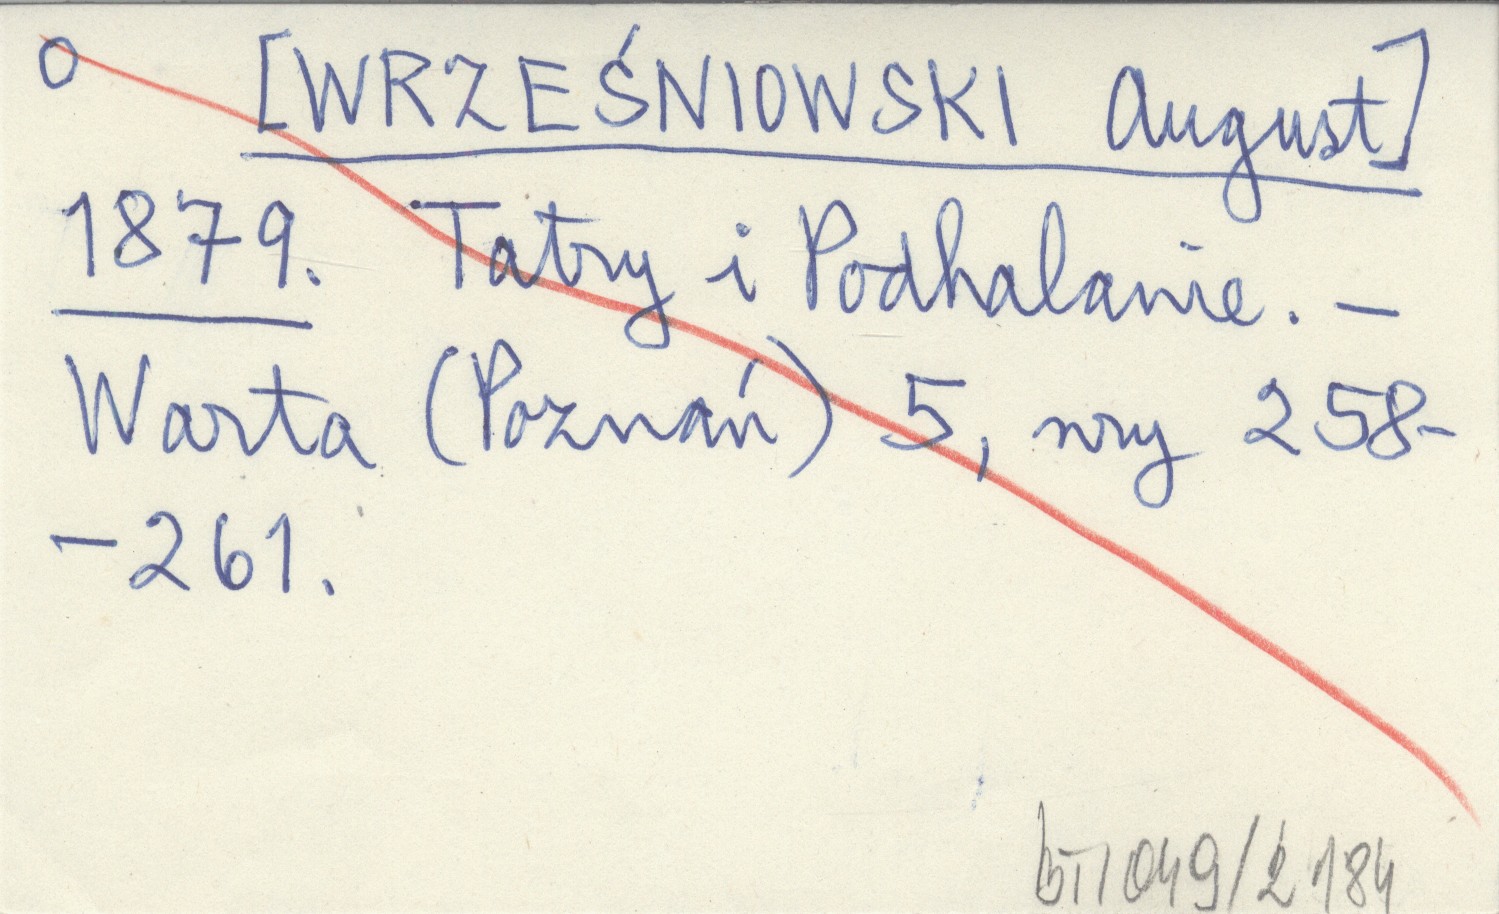 o [WRZEŚNIOWSKI August]
1879. Tatry i Podhalanie. —
Warta (Poznań) 5, nry 258-
-261.
049/2184